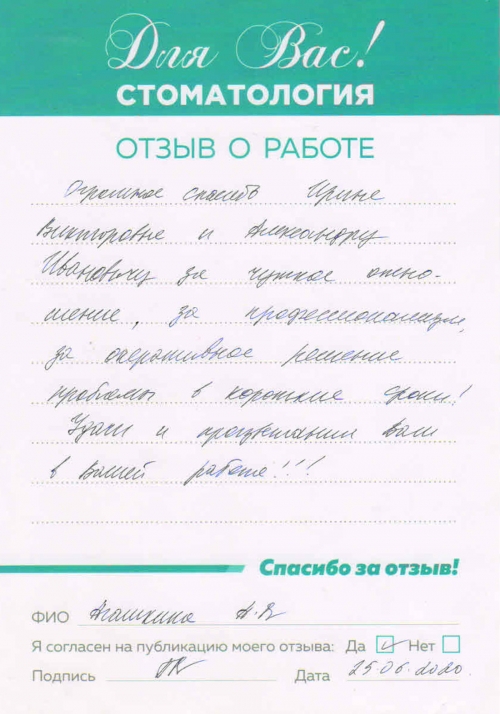 Для Вас!
СТОМАТОЛОГИЯ
ОТЗЫВ О РАБОТЕ
Огромное спасибо Ирине
Викторовне и Александру
Ивановичу за чуткое отно-
шение, за профессионализм,
за оперативное решение
проблемы в короткие сроки!
Удачи и процветания Вам
в Вашей работе!!!
Спасибо за отзыв!
ФИО Агашкина А.
Я согласен на публикацию моего отзыва: Да Нет
Подпись Дата 25.06.2020